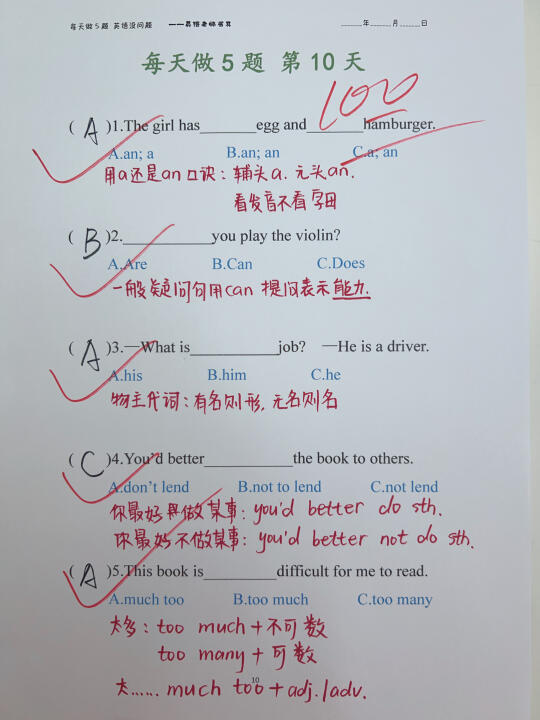 每天做5题 英语没问题 ——易悟老师书写 ____年____月____日
每天做5题 第10天
100
( A )1.The girl has_______egg and_______hamburger.
A.an; a B.an; an C.a; an
用a还是an口诀：辅头a.元头an.
看发音不看字母
( B )2.____________you play the violin?
A.Are B.Can C.Does
一般疑问句用can 提问表示能力.
( A )3.—What is____________job? —He is a driver.
A.his B.him C.he
物主代词：有名则形,无名则名
( C )4.You’d better____________the book to others.
A.don’t lend B.not to lend C.not lend
你最好做某事：you'd better do sth.
你最好不做某事：you'd better not do sth.
( A )5.This book is__________difficult for me to read.
A.much too B.too much C.too many
太多：too much+不可数
too many+可数
太…… much too+adj./adv.
10